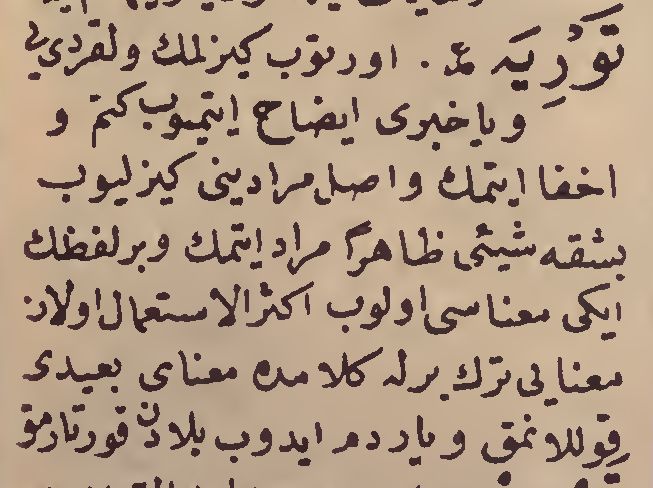 تَوْرِيَه ع . اورتوب كیزلمك ولقردي یی
ویاخبری ایضاح ایتمیوب كتم و
اخفا ایتمك واصل مرادینی كیزلیوب
بشقه شیئی ظاهرًا مراد ایتمك وبرلفظك
ایكی معناسی اولوب اكثرالاستعمال اولان
معنایی ترك برله كلامده معنای بعیدی
قوللانمق ویاردم ایدوب بلادن قورتارمق